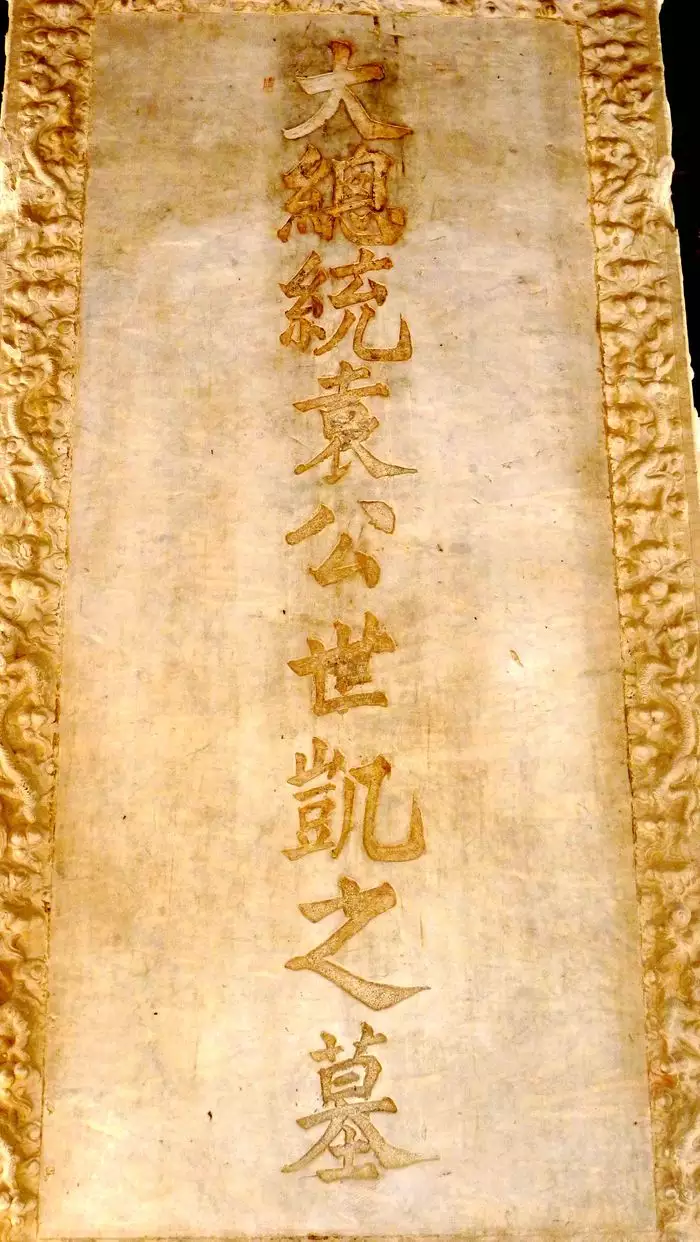 大總統袁公世凱之墓